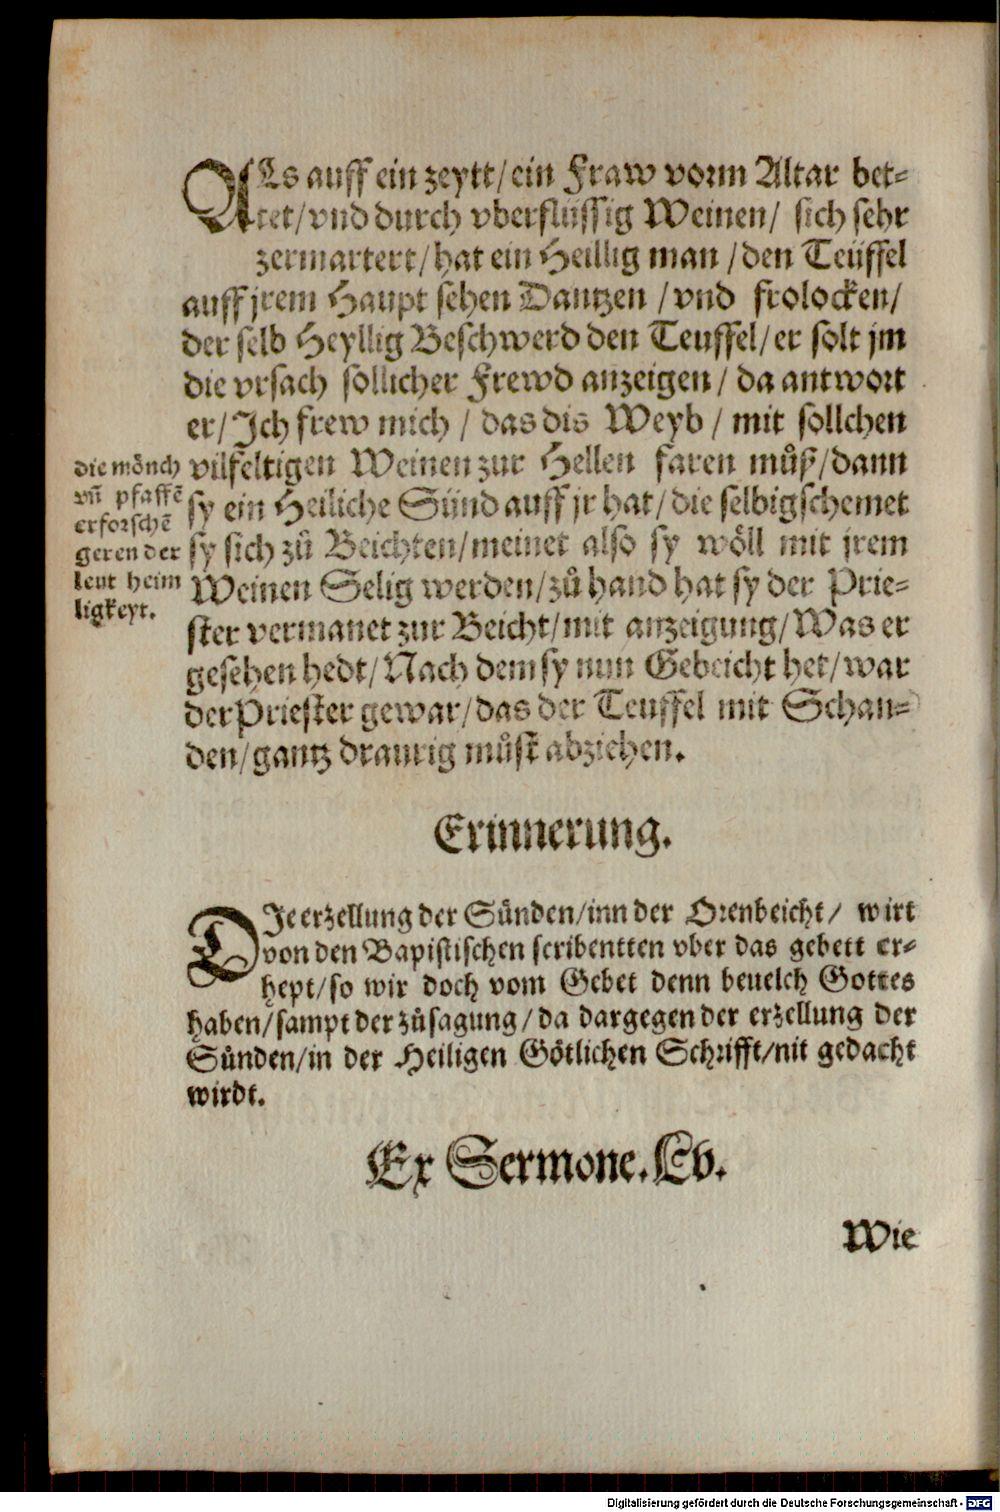 ALs auff ein zeytt/ein Fraw vorm Altar bet-
tet/vnd durch vberflüssig Weinen/ sich sehr
zermartert/hat ein Heillig man /den Teüffel
auff jrem Haupt sehen Dantzen /vnd frolocken/
der selb Heyllig Beschwerd den Teuffel/er solt jm
die vrsach sollicher Frewd anzeigen/ da antwort
er/Ich frew mich / das dis Weyb / mit sollchen
vilfeltigen Weinen zur Hellen faren můß/dann
sy ein Heiliche Sünd auff jr hat/die selbig schemet
sy sich zů Beichten/meinet also sy wöll mit jrem
Weinen Selig werden/zů hand hat sy der Prie-
ster vermanet zur Beicht/mit anzeigung/Was er
gesehen hedt/Nach dem sy nun Gebeicht het/war
der Priester gewar/das der Teuffel mit Schan-
den/gantz draurig můst abziehen.
die mönch
vñ pfaffē
erforschē
geren der
leut heim
ligkeyt.
Erinnerung.
DIe erzellung der Sünden/inn der Orenbeicht/ wirt
von den Bapistischen scribentten vber das gebett er-
hept/so wir doch vom Gebet denn beuelch Gottes
haben/sampt der zůsagung/da dargegen der erzellung der
Sünden/in der Heiligen Götlichen Schrifft/nit gedacht
wirdt.
Ex Sermone. Lv.
Wie
Digitalisierung gefördert durch die Deutsche Forschungsgemeinschaft - DFG